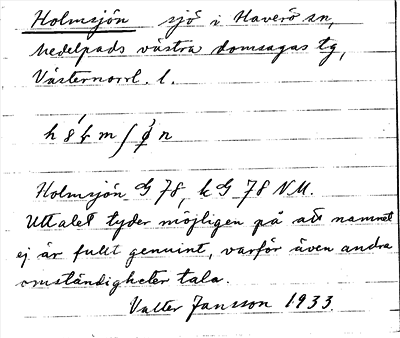 Holmsjön sjö i Haverö sn,
Medelpads västra domsagas tg,
Västernorrl. l.
Holmsjön G 78, kG 78 NM.
Uttalet tyder möjligen på att namnet
ej är fullt genuint, varför även andra
omständigheter tala.
Valter Jansson 1933.